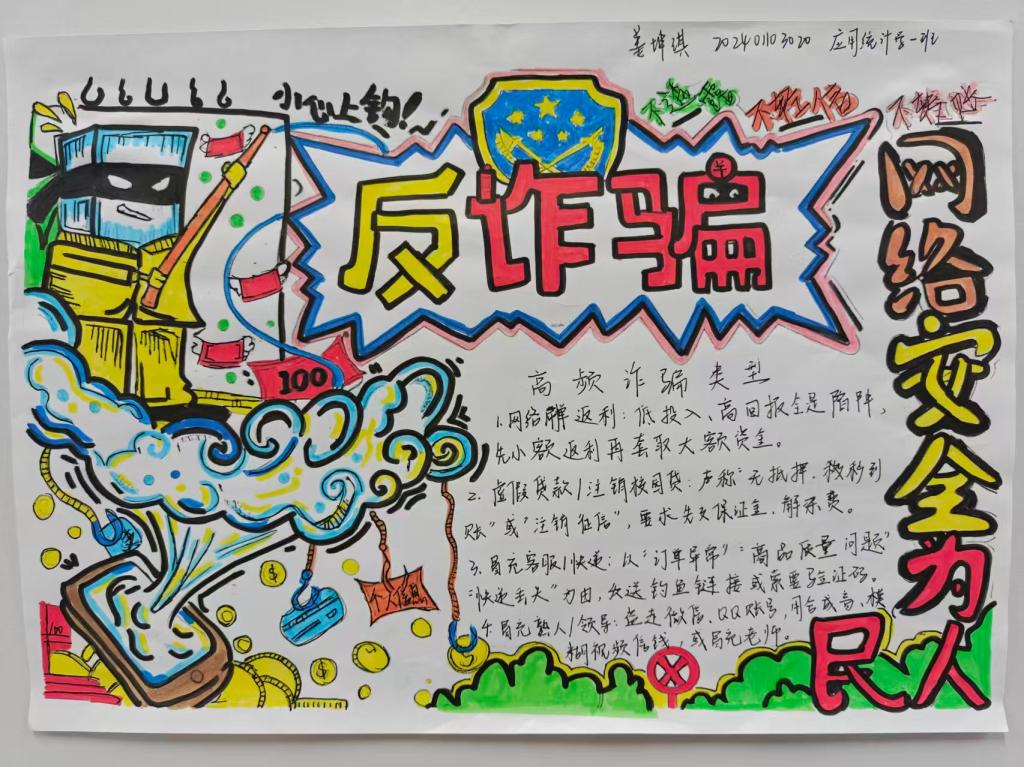 姜坤琪 20240103020 应用统计学一班
小心上钩!
不透露
不轻信
不转账
反诈骗
网络安全为人民
100
高频诈骗类型
1.网络刷单返利：低投入、高回报全是陷阱，
先小额返利再套取大额资金。
2. 虚假贷款/注销校园贷：声称"无抵押、秒到
账"或"注销征信"，要求先交保证金、解冻费。
3.冒充客服/快递：以"订单异常""商品质量问题"
"快递丢失"为由，发送钓鱼链接或索要验证码。
4.冒充熟人/领导：盗走微信、QQ账号，用合成音、模
糊视频借钱，或冒充老师。
个人信息
100